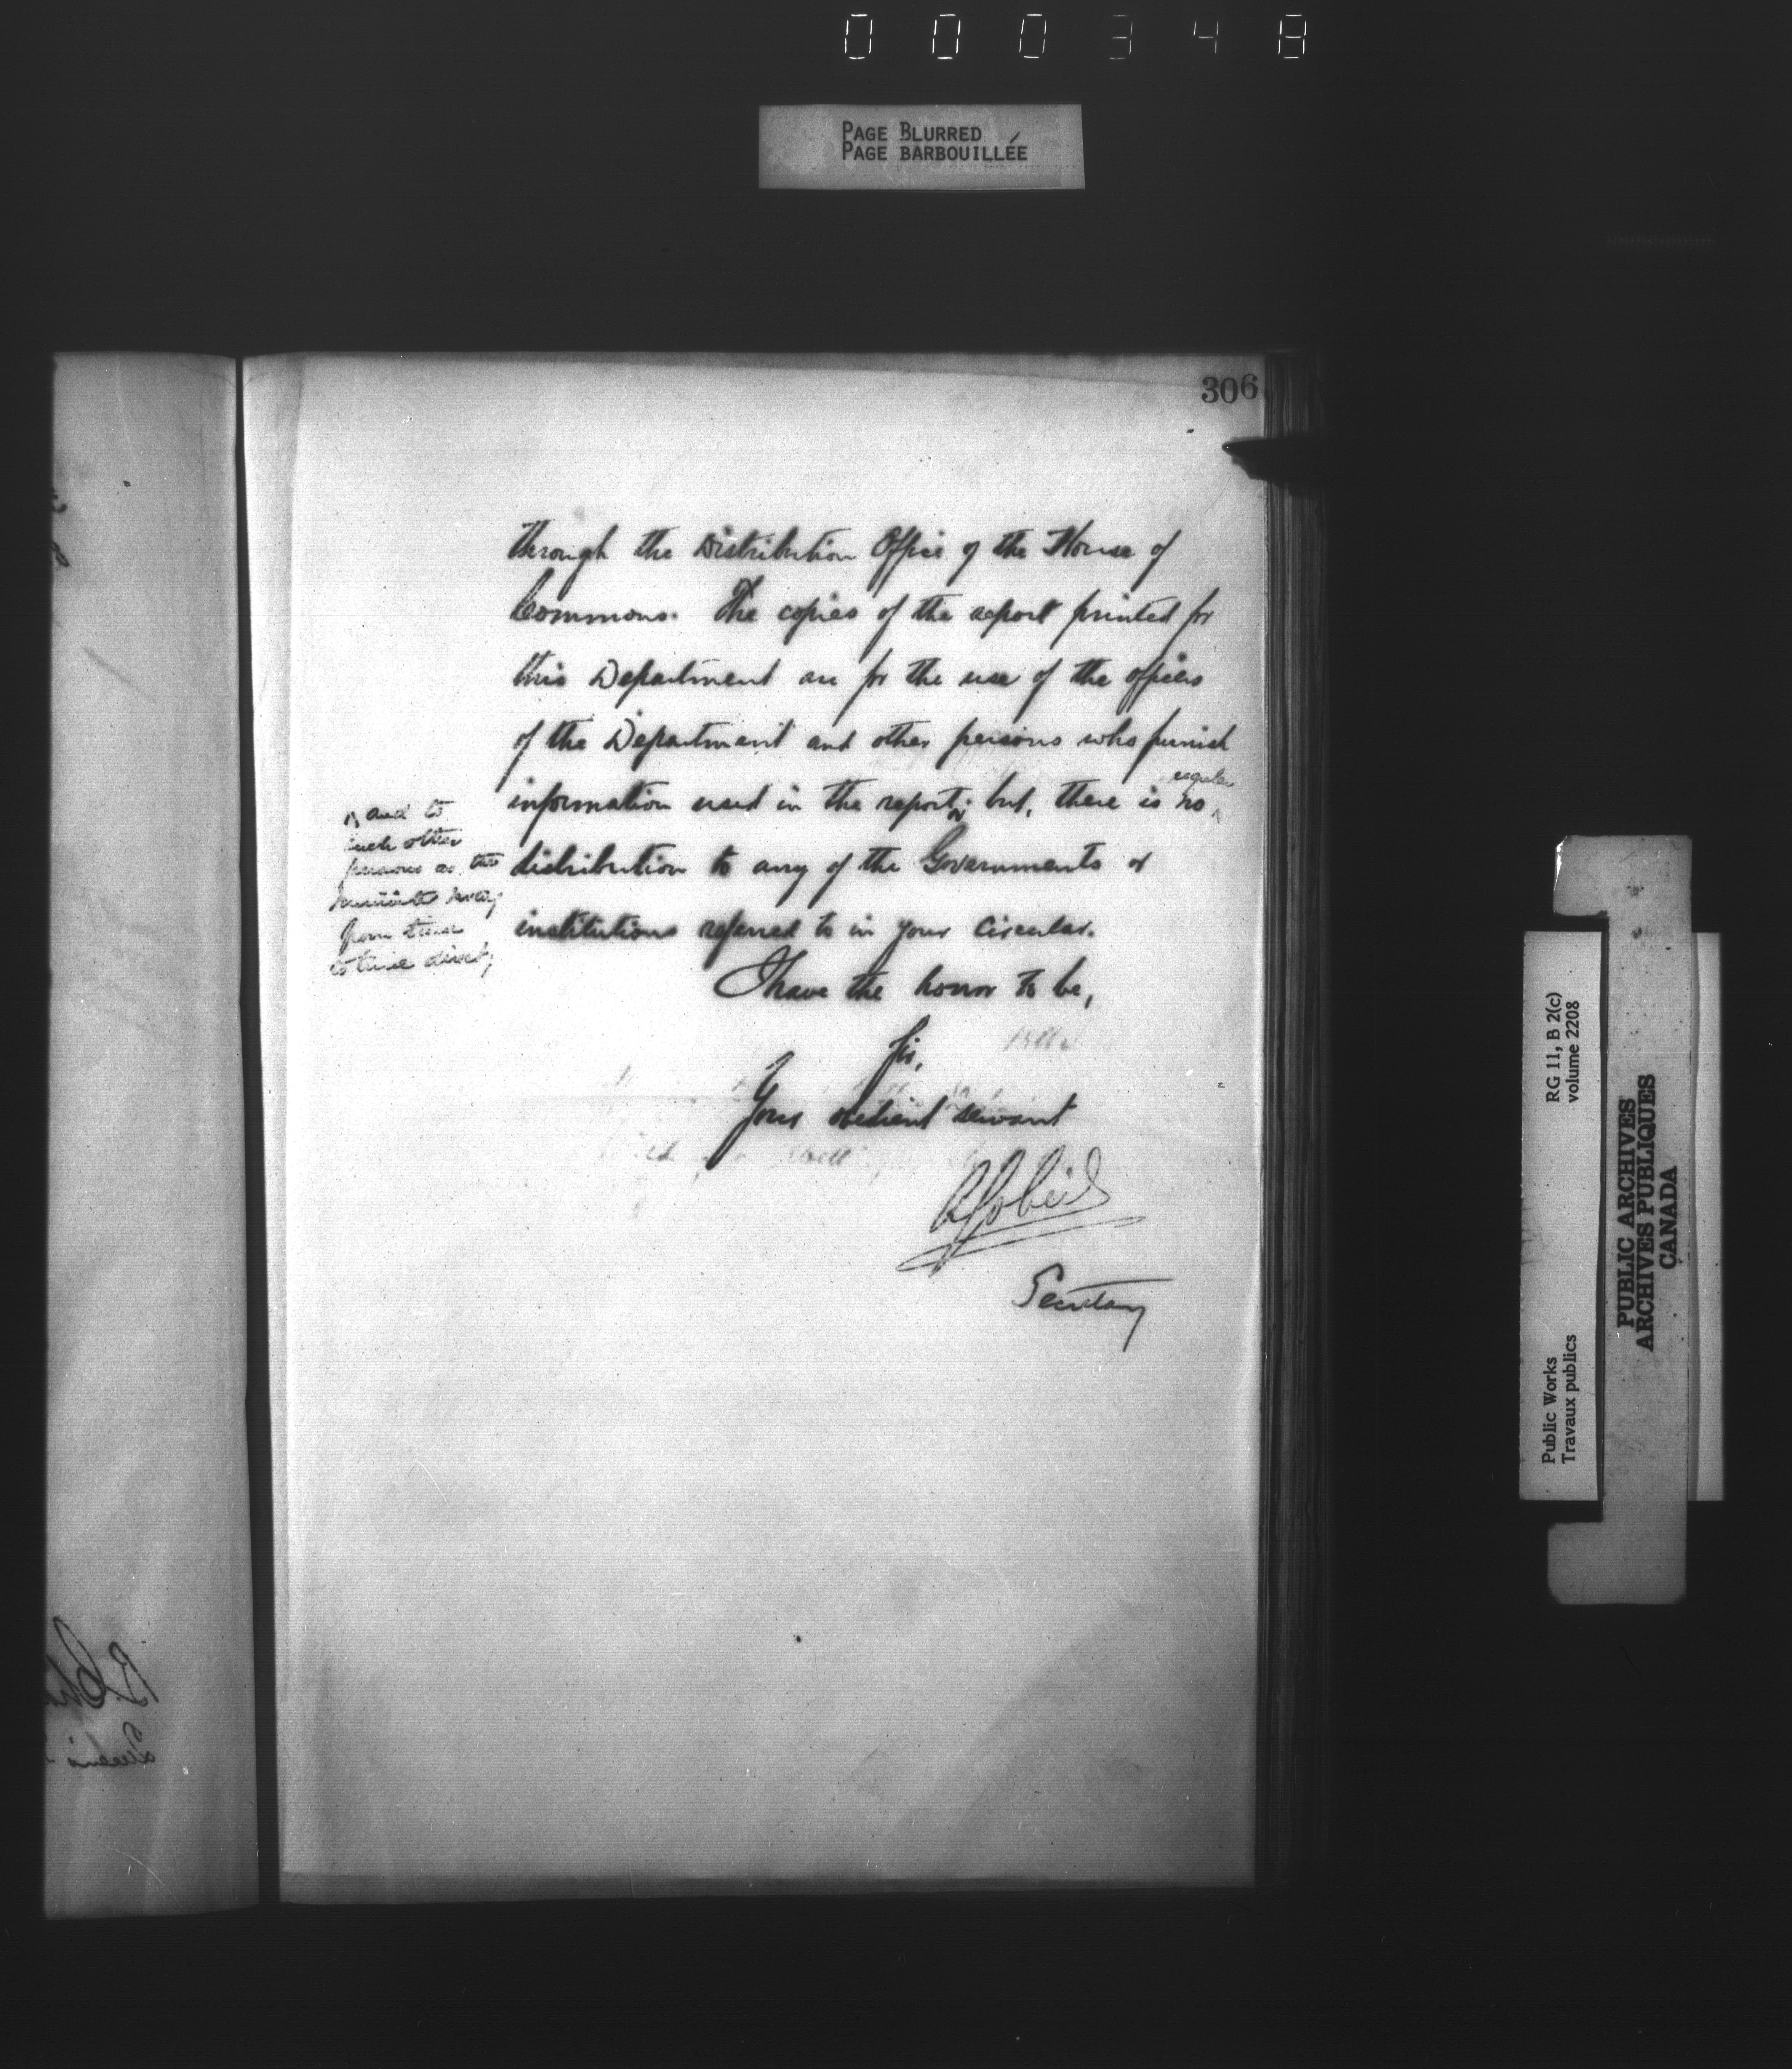 000348
PAGE BLURRED
PAGE BARBOUILLÉE
306
through the Distribution Office of the House of
Commons. The copies of the report printed for
this Department are for the use of the officers
of the Department and other persons who furnish
regular
information used in the report; but, there is no
distribution to any of the Governments or
institutions referred to in your Circular.
and to
such other
persons as the
Minister may
from time
to time direct;
I have the honor to be,
Sir,
Your obedient servant
Gobeil
Secretary
RG 11, B 2(c)
volume 2208
Public Works
Travaux publics
PUBLIC ARCHIVES
ARCHIVES PUBLIQUES
CANADA